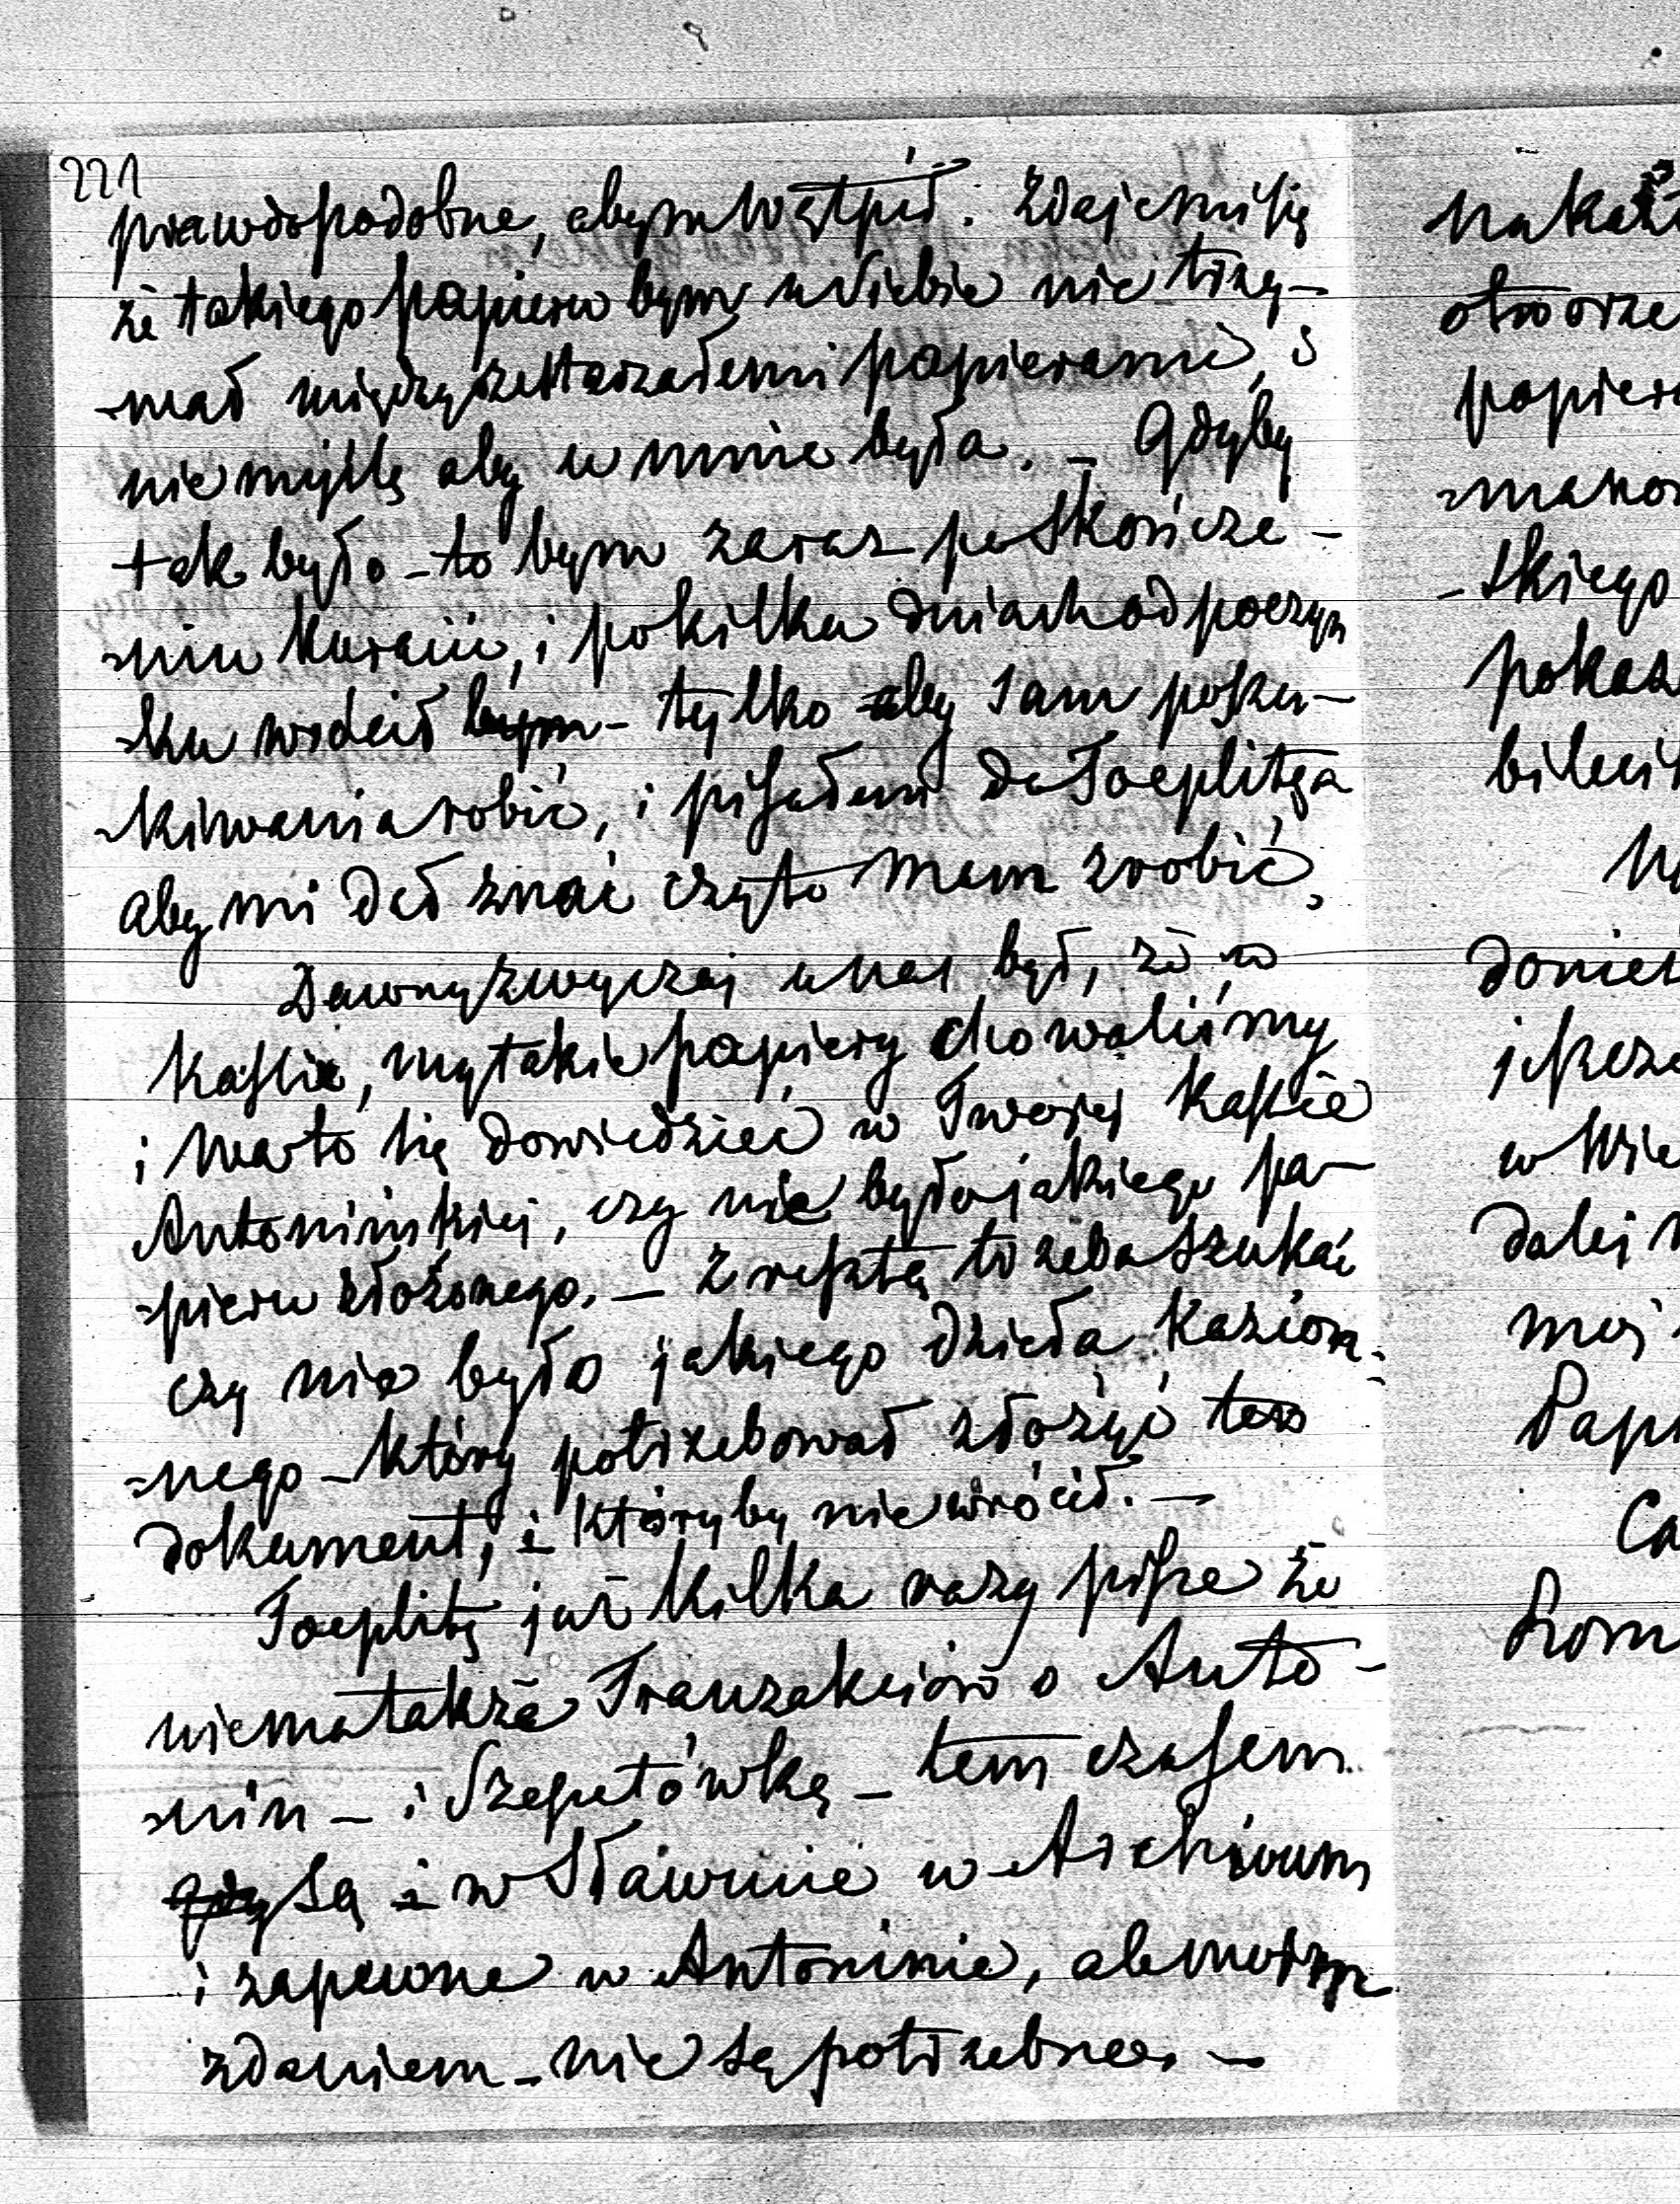 221
prawdopodobne, abym wątpił. Zdaje mi się
że takiego papieru bym u siebie nie trzy-
-mał między zestarzałemi papierami, i
nie myślę aby u mnie była. – Gdyby
tak było – to bym zaraz po skończe-
-niu kuracii, i po kilku dniach odpoczyn
-ku wrócił bym – tylko aby sam poszu-
-kiwania robić, i pisałem do Toeplitza
aby mi dał znać czy to mam zrobić,
Dawny zwyczaj u nas był, że w
Kassie, my takie papiery chowaliśmy
i warto się dowiedzieć w Twojej Kassie
Antonińskiej, czy nie było jakiego pa-
-pieru złożonego. – Z resztą trzeba szukać
czy nie było jakiego dzieła Kazion-
-nego – który potrzebował złożyć ten
dokument, i któryby nie wrócił. –
Toeplitz już kilka razy pisze że
nie ma także Tranzakciów o Anto-
-nin – i Szepetówkę – tem czasem
są i w Sławucie w Archivum
i zapewne w Antoninie, ale moim
zdaniem – nie są potrzebne. –
nakaz
otworze
papier
-skiego
pokaz
bileci
donies
jeszcze
w Wie
dalej
moj
Papi
Ca
Rom